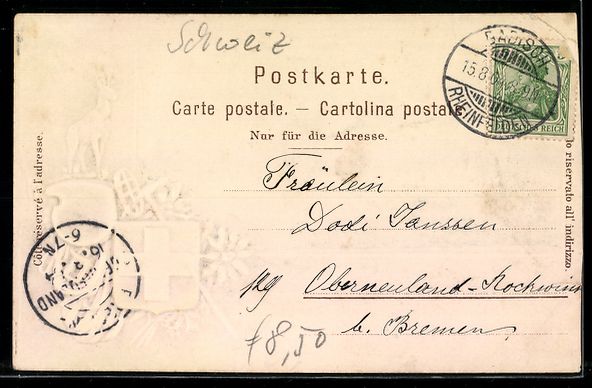 Schweiz
Postkarte.
Carte postale. — Cartolina postale
Nur für die Adresse.
BADISCH
15.8.0
RHEINFELDEN
REICH
Côté réservé à l'adresse.
lo riservato all' indirizzo
Fräulein
Dodi Janssen
Oberneuland-Rockwin
b. Bremen
6-7N
LAND
8,50